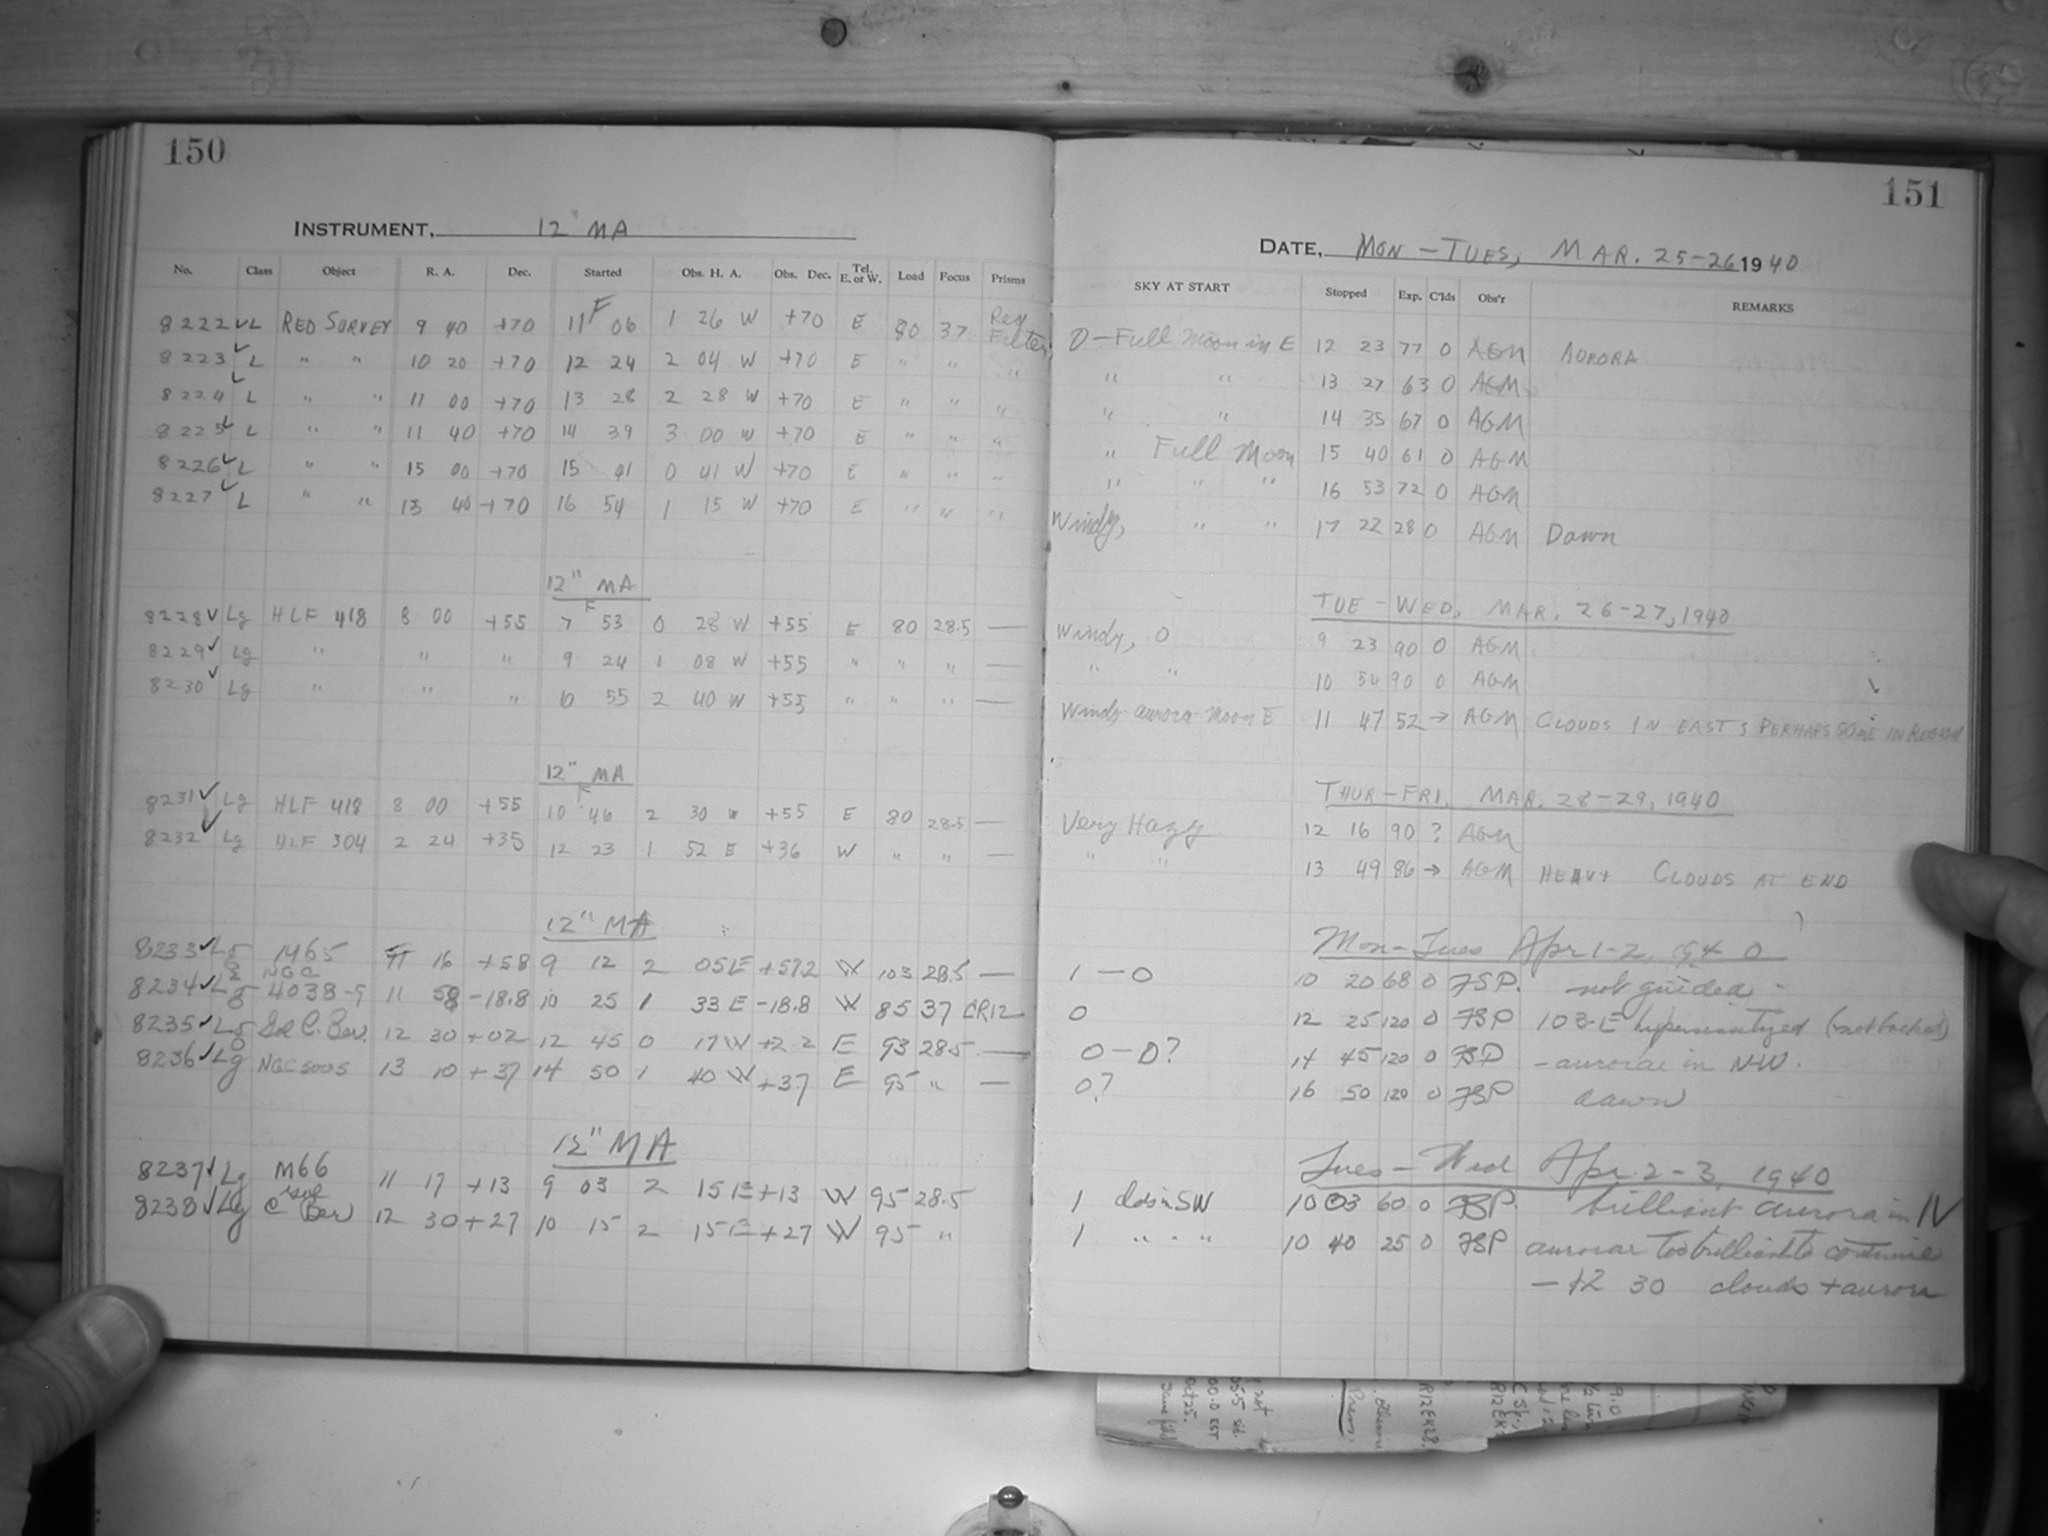 150
INSTRUMENT, 12" MA
No. Class Object R. A. Dec. Started Obs. H. A. Obs. Dec. Tel. E. or W. Load Focus Prisms
8222 ✓ L RED SURVEY 9 40 +70 11 F 06 1 26 W +70 E 80 37 Red Filter
8223 ✓ L " " 10 20 +70 12 24 2 04 W +70 E " " "
8224 ✓ L " " 11 00 +70 13 28 2 28 W +70 E " " "
8225 ✓ L " " 11 40 +70 14 39 3 00 W +70 E " " "
8226 ✓ L " " 15 00 +70 15 41 0 41 W +70 E " " "
8227 ✓ L " " 13 40 +70 16 54 1 15 W +70 E " " "
12" MA
8228 ✓ Lg HLF 418 8 00 +55 7 F 53 0 28 W +55 E 80 28.5 —
8229 ✓ Lg " " " 9 24 1 08 W +55 " " " —
8230 ✓ Lg " " " 10 55 2 40 W +55 " " " —
12" MA
8231 ✓ Lg HLF 418 8 00 +55 10 F 46 2 30 W +55 E 80 28.5 —
8232 ✓ Lg HLF 304 2 24 +35 12 23 1 52 E +36 W " " —
12" MA
8233 ✓ Lg M65 11 16 +58 9 12 2 05 E +57.2 W 103 28.5 —
8234 ✓ Lg NGC 4038-9 11 58 -18.8 10 25 1 33 E -18.8 W 85 37 CR12
8235 ✓ Lg Gal C. Ber. 12 30 +02 12 45 0 17 W +2.2 E 93 28.5 —
8236 ✓ Lg NGC 5005 13 10 +37 14 50 1 40 W +37 E 95 " —
12" MA
8237 ✓ Lg M66 11 17 +13 9 03 2 15 E +13 W 95 28.5
8238 ✓ Lg C Gal Ber 12 30 +27 10 15 2 15 E +27 W 95 "
151
DATE, MON - TUES, MAR. 25-26 1940
SKY AT START Stopped Exp. C'lds Obs'r REMARKS
0 - Full Moon in E 12 23 77 0 AGM AURORA
" " 13 27 63 0 AGM
" " 14 35 67 0 AGM
" Full Moon 15 40 61 0 AGM
" " " 16 53 72 0 AGM
Windy, " " 17 22 28 0 AGM Dawn
TUE - WED, MAR. 26-27, 1940
Windy, 0 9 23 90 0 AGM
" " 10 54 90 0 AGM
Windy aurora Moon E 11 47 52 → AGM CLOUDS IN EAST & PERHAPS SOME IN REGION
THUR - FRI. MAR. 28-29, 1940
Very Hazy 12 16 90 ? AGM
" " 13 49 86 → AGM HEAVY CLOUDS AT END
Mon - Tues Apr 1-2, 1940
1 — 0 10 20 68 0 FSP. not guided -
0 12 25 120 0 FSP 103-E hypersensitized (not backed)
0 — 0? 14 45 120 0 FSP - aurorae in NW.
0? 16 50 120 0 FSP dawn
Tues - Wed Apr. 2-3, 1940
1 clds in SW 10 03 60 0 FSP. brilliant aurora in N
1 " " " 10 40 25 0 FSP aurorae too brilliant to continue
— 12 30 clouds + aurora